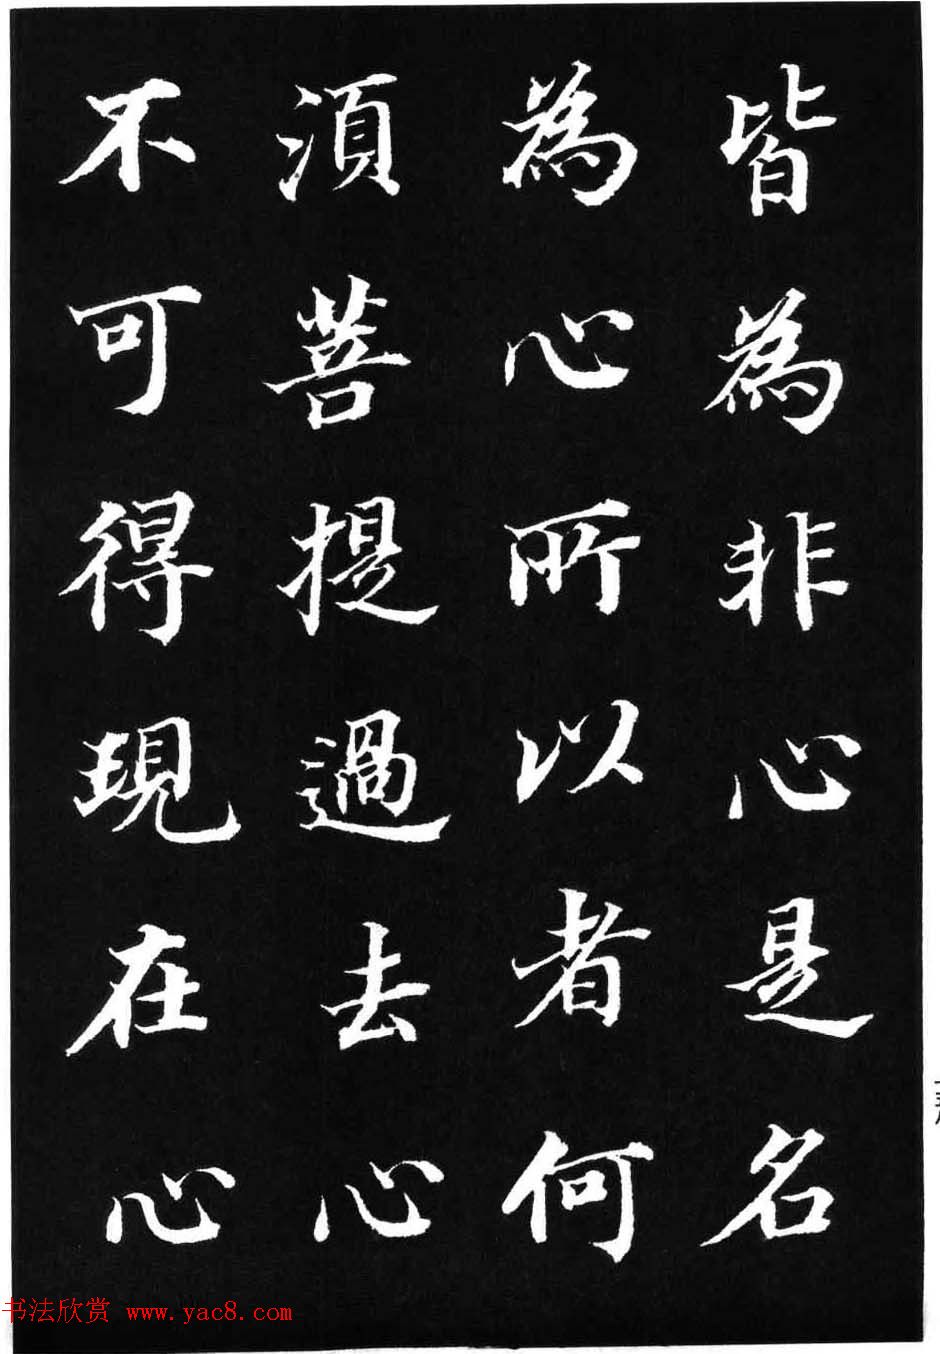 皆為非心是名
為心所以者何
須菩提過去心
不可得現在心
书法欣赏 www.yac8.com